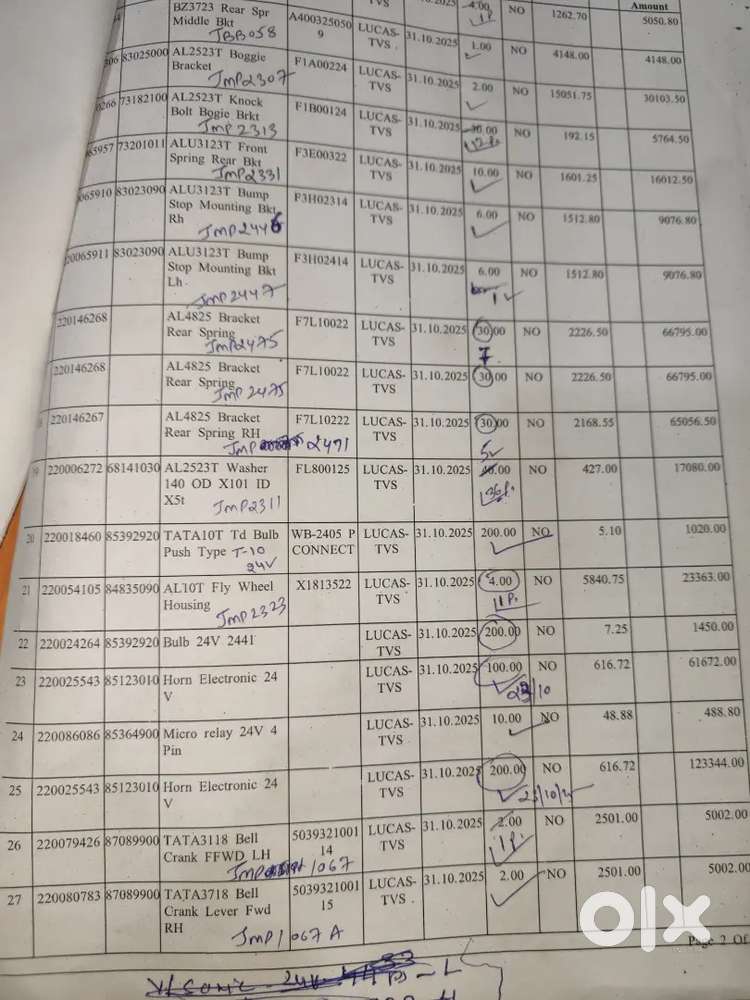 Amount
BZ3723 Rear Spr Middle Bkt A4003250509 LUCAS-TVS 31.10.2025 4.00 NO 1262.70 5050.80
JBB058 1P.
83025000 AL2523T Boggie Bracket F1A00224 LUCAS-TVS 31.10.2025 1.00 NO 4148.00 4148.00
JMP2307
0266 73182100 AL2523T Knock Bolt Bogie Brkt F1B00124 LUCAS-TVS 31.10.2025 2.00 NO 15051.75 30103.50
JMP2313
65957 73201011 ALU3123T Front Spring Rear Bkt F3E00322 LUCAS-TVS 31.10.2025 30.00 NO 192.15 5764.50
JMP2331
065910 83023090 ALU3123T Bump Stop Mounting Bkt Rh F3H02314 LUCAS-TVS 31.10.2025 10.00 NO 1601.25 16012.50
JMP2446
6.00 NO 1512.80 9076.80
20065911 83023090 ALU3123T Bump Stop Mounting Bkt Lh F3H02414 LUCAS-TVS 31.10.2025 6.00 NO 1512.80 9076.80
JMP2447
220146268 AL4825 Bracket Rear Spring F7L10022 LUCAS-TVS 31.10.2025 30.00 NO 2226.50 66795.00
JMP2475 7
220146268 AL4825 Bracket Rear Spring F7L10022 LUCAS-TVS 31.10.2025 30.00 NO 2226.50 66795.00
JMP2475
220146267 AL4825 Bracket Rear Spring RH F7L10222 LUCAS-TVS 31.10.2025 30.00 NO 2168.55 65056.50
JMP 2471
19 220006272 68141030 AL2523T Washer 140 OD X101 ID X5t FL800125 LUCAS-TVS 31.10.2025 40.00 NO 427.00 17080.00
JMP2311
20 220018460 85392920 TATA10T Td Bulb Push Type WB-2405 P CONNECT LUCAS-TVS 31.10.2025 200.00 NO 5.10 1020.00
T-10 24V
21 220054105 84835090 AL10T Fly Wheel Housing X1813522 LUCAS-TVS 31.10.2025 4.00 NO 5840.75 23363.00
JMP2323
22 220024264 85392920 Bulb 24V 2441 LUCAS-TVS 31.10.2025 200.00 NO 7.25 1450.00
23 220025543 85123010 Horn Electronic 24 V LUCAS-TVS 31.10.2025 100.00 NO 616.72 61672.00
24 220086086 85364900 Micro relay 24V 4 Pin LUCAS-TVS 31.10.2025 10.00 NO 48.88 488.80
25 220025543 85123010 Horn Electronic 24 V LUCAS-TVS 31.10.2025 200.00 NO 616.72 123344.00
26 220079426 87089900 TATA3118 Bell Crank FFWD LH 503932100114 LUCAS-TVS 31.10.2025 2.00 NO 2501.00 5002.00
1067 1P.
27 220080783 87089900 TATA3718 Bell Crank Lever Fwd RH 503932100115 LUCAS-TVS 31.10.2025 2.00 NO 2501.00 5002.00
JMP1067A
Page 2 Of
olx